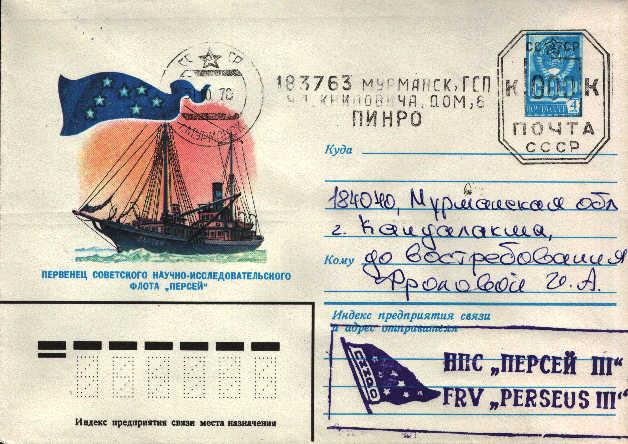 СССР
70
183763 МУРМАНСК, ГСП
УЛ. КНИПОВИЧА, ДОМ, 6
ПИНРО
СССР
ПОЧТА
СССР
4
Куда
184040, Мурманская обл
г. Кандалакша,
Кому
до востребования
Фроловой И. А.
ПЕРВЕНЕЦ СОВЕТСКОГО НАУЧНО-ИССЛЕДОВАТЕЛЬСКОГО
ФЛОТА „ПЕРСЕЙ"
Индекс предприятия связи
и адрес отправителя
ПИНРО
НПС „ПЕРСЕЙ III"
FRV „PERSEUS III"
Индекс предприятия связи места назначения